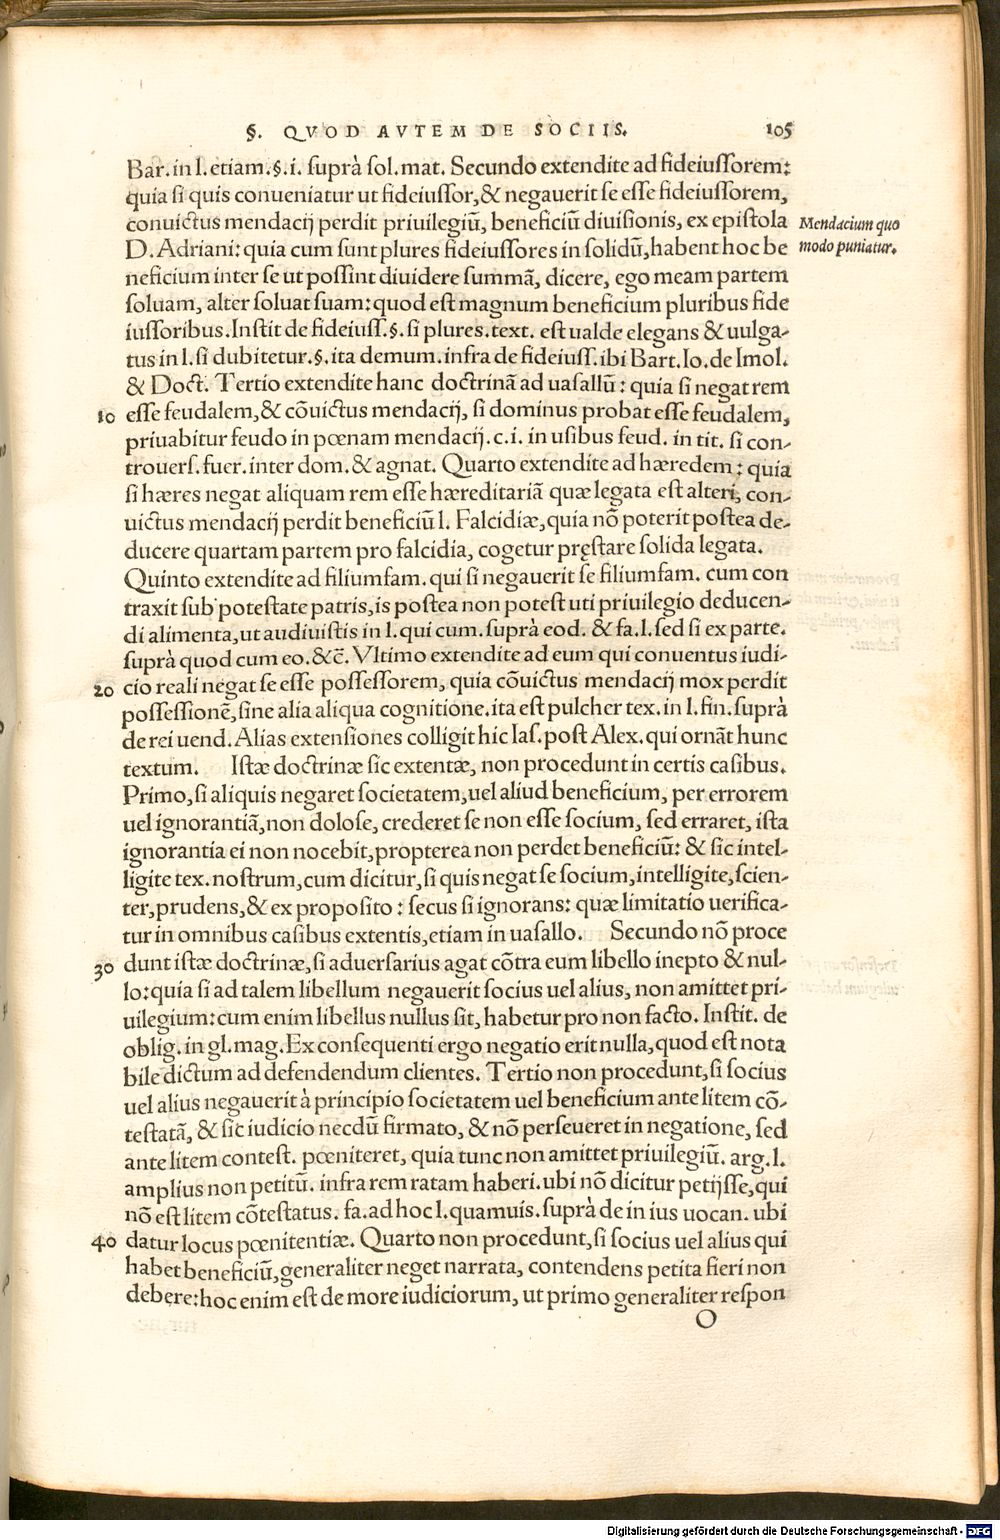 §. QVOD AVTEM DE SOCIIS. 105
Bar. in l. etiam. §. i. suprà sol. mat. Secundo extendite ad fideiussorem:
quia si quis conueniatur ut fideiussor, & negauerit se esse fideiussorem,
conuictus mendacij perdit priuilegiũ, beneficiũ diuisionis, ex epistola
Mendacium quo
D. Adriani: quia cum sunt plures fideiussores in solidũ, habent hoc be
modo puniatur.
neficium inter se ut possint diuidere summã, dicere, ego meam partem
soluam, alter soluat suam: quod est magnum beneficium pluribus fide
iussoribus. Instit de fideiuss. §. si plures. text. est ualde elegans & uulga-
tus in l. si dubitetur. §. ita demum. infra de fideiuss. ibi Bart. Io. de Imol.
& Doct. Tertio extendite hanc doctrinã ad uasallũ: quia si negat rem
10 esse feudalem, & cõuictus mendacij, si dominus probat esse feudalem,
priuabitur feudo in pœnam mendacij. c. i. in usibus feud. in tit. si con-
trouers. fuer. inter dom. & agnat. Quarto extendite ad hæredem: quia
si hæres negat aliquam rem esse hæreditariã quæ legata est alteri, con-
uictus mendacij perdit beneficiũ l. Falcidiæ, quia nõ poterit postea de-
ducere quartam partem pro falcidia, cogetur pręstare solida legata.
Quinto extendite ad filiumfam. qui si negauerit se filiumfam. cum con
traxit sub potestate patris, is postea non potest uti priuilegio deducen-
di alimenta, ut audiuistis in l. qui cum. suprà eod. & fa. l. sed si ex parte.
suprà quod cum eo. &c̃. Vltimo extendite ad eum qui conuentus iudi-
20 cio reali negat se esse possessorem, quia cõuictus mendacij mox perdit
possessionẽ, sine alia aliqua cognitione. ita est pulcher tex. in l. fin. suprà
de rei uend. Alias extensiones colligit hic Ias. post Alex. qui ornãt hunc
textum. Istæ doctrinæ sic extentæ, non procedunt in certis casibus.
Primo, si aliquis negaret societatem, uel aliud beneficium, per errorem
uel ignorantiã, non dolose, crederet se non esse socium, sed erraret, ista
ignorantia ei non nocebit, propterea non perdet beneficiũ: & sic intel-
ligite tex. nostrum, cum dicitur, si quis negat se socium, intelligite, scien-
ter, prudens, & ex proposito: secus si ignorans: quæ limitatio uerifica-
tur in omnibus casibus extentis, etiam in uasallo. Secundo nõ proce
30 dunt istæ doctrinæ, si aduersarius agat cõtra eum libello inepto & nul-
lo: quia si ad talem libellum negauerit socius uel alius, non amittet pri-
uilegium: cum enim libellus nullus sit, habetur pro non facto. Instit. de
oblig. in gl. mag. Ex consequenti ergo negatio erit nulla, quod est nota
bile dictum ad defendendum clientes. Tertio non procedunt, si socius
uel alius negauerit à principio societatem uel beneficium ante litem cõ-
testatã, & sic iudicio necdũ firmato, & nõ perseueret in negatione, sed
ante litem contest. pœniteret, quia tunc non amittet priuilegiũ. arg. l.
amplius non petitũ. infra rem ratam haberi. ubi nõ dicitur petijsse, qui
nõ est litem cõtestatus. fa. ad hoc l. quamuis. suprà de in ius uocan. ubi
40 datur locus pœnitentiæ. Quarto non procedunt, si socius uel alius qui
habet beneficiũ, generaliter neget narrata, contendens petita fieri non
debere: hoc enim est de more iudiciorum, ut primo generaliter respon
O
Digitalisierung gefördert durch die Deutsche Forschungsgemeinschaft - DFG